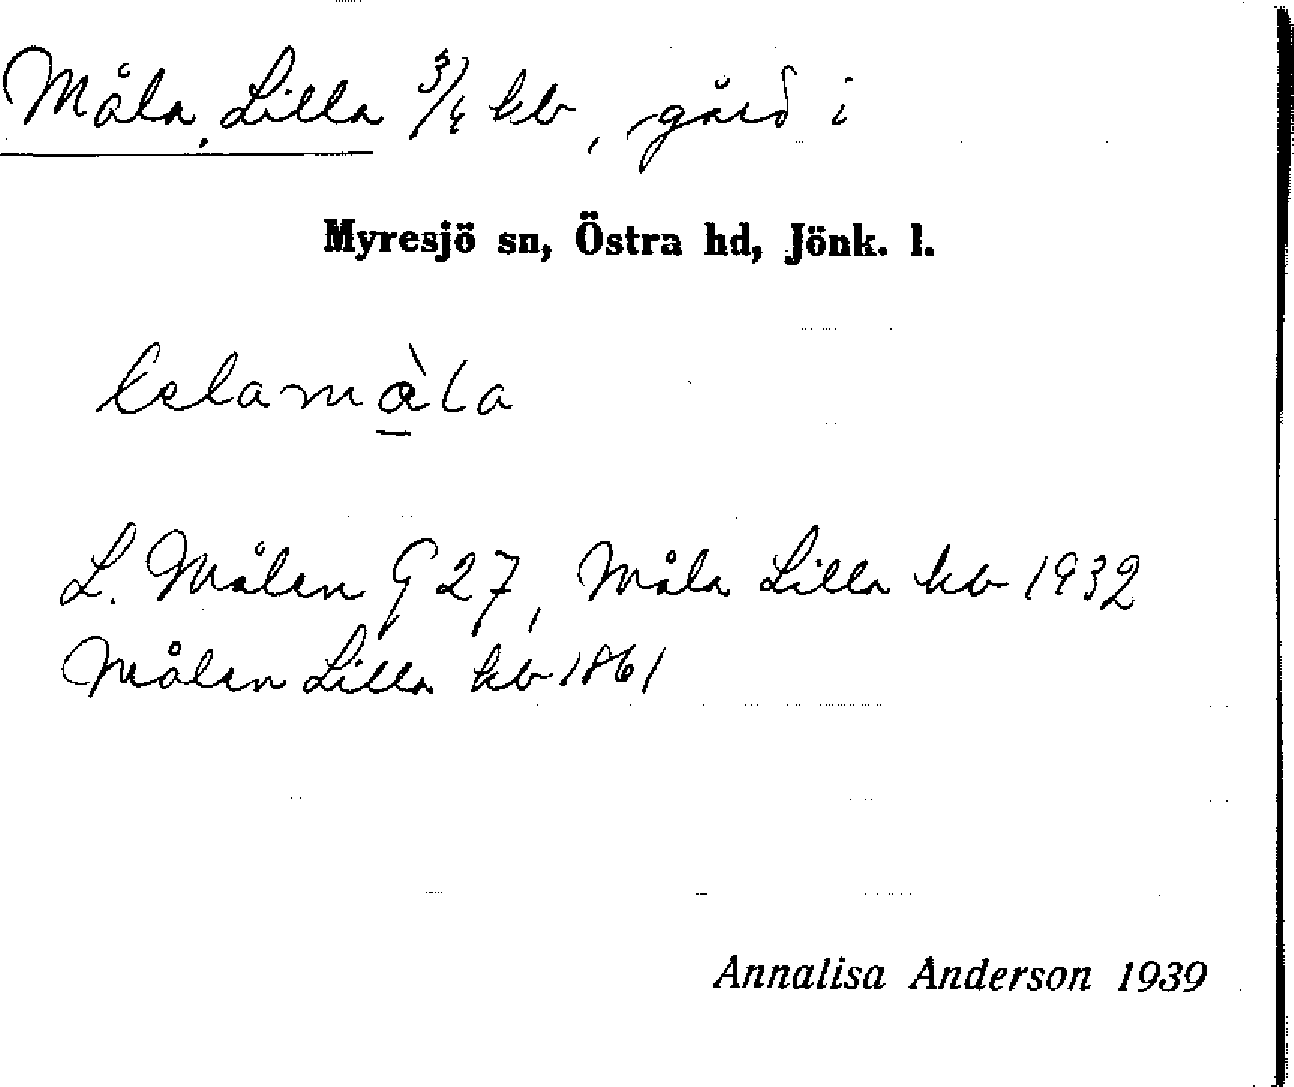 Måla, Lilla 3/4 kb, gård i
Myresjö sn, Östra hd, Jönk. l.
L. Målen G 27, Måla Lilla kb 1932
Målen Lilla kb 1861
Annalisa Anderson 1939